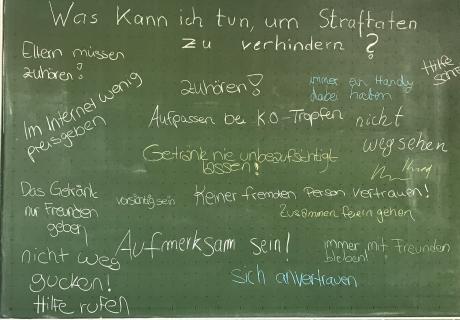 Was kann ich tun, um Straftaten
zu verhindern?
Eltern müssen
zuhören!
Hilfe
zuhören!
immer ein Handy
dabei haben
Im Internet wenig
preisgeben
Aufpassen bei K.O-Tropfen
nicht
wegsehen
Getränk nie unbeaufsichtigt
lassen!
Das Getränk
nur Freunden
geben
vorsichtig sein
Keiner fremden Person vertrauen!
Zusammen feiern gehen
Aufmerksam sein!
immer mit Freunden
bleiben!
nicht weg
gucken!
sich anvertrauen
Hilfe rufen